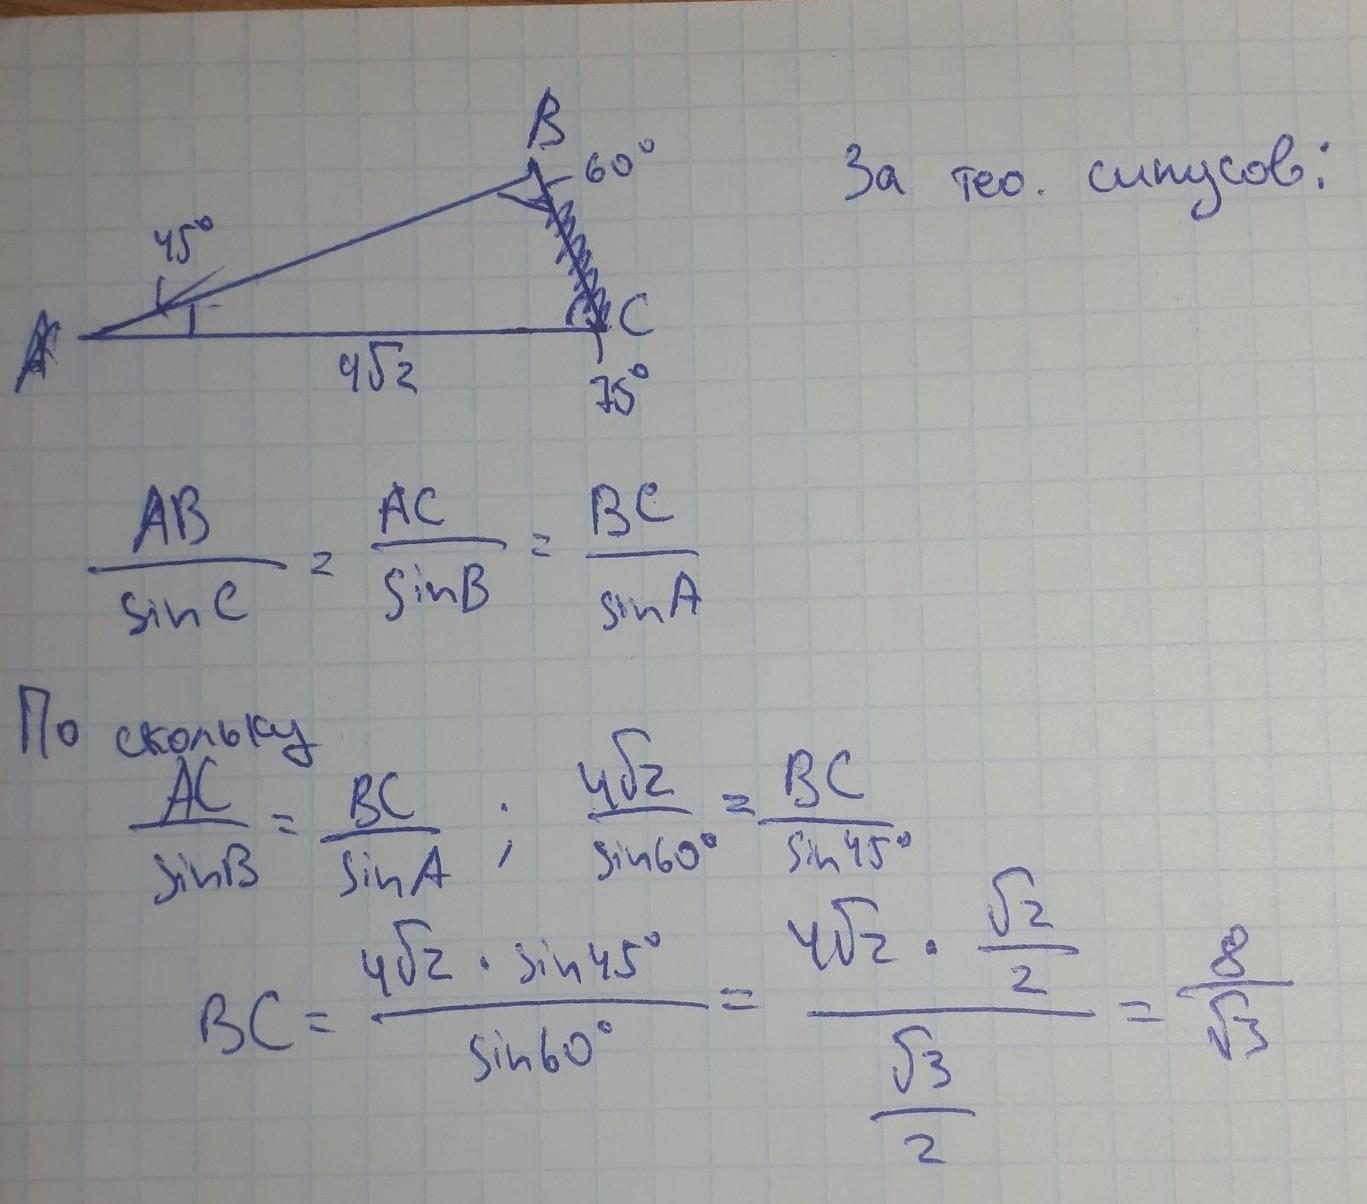 B
60°
За тео. синусов:
45°
A
C
4√2
75°
AB/sinC = AC/sinB = BC/sinA
По скольку
AC/sinB = BC/sinA ; 4√2/sin60° = BC/sin45°
BC = (4√2 · sin45°)/sin60° = (4√2 · √2/2)/(√3/2) = 8/√3